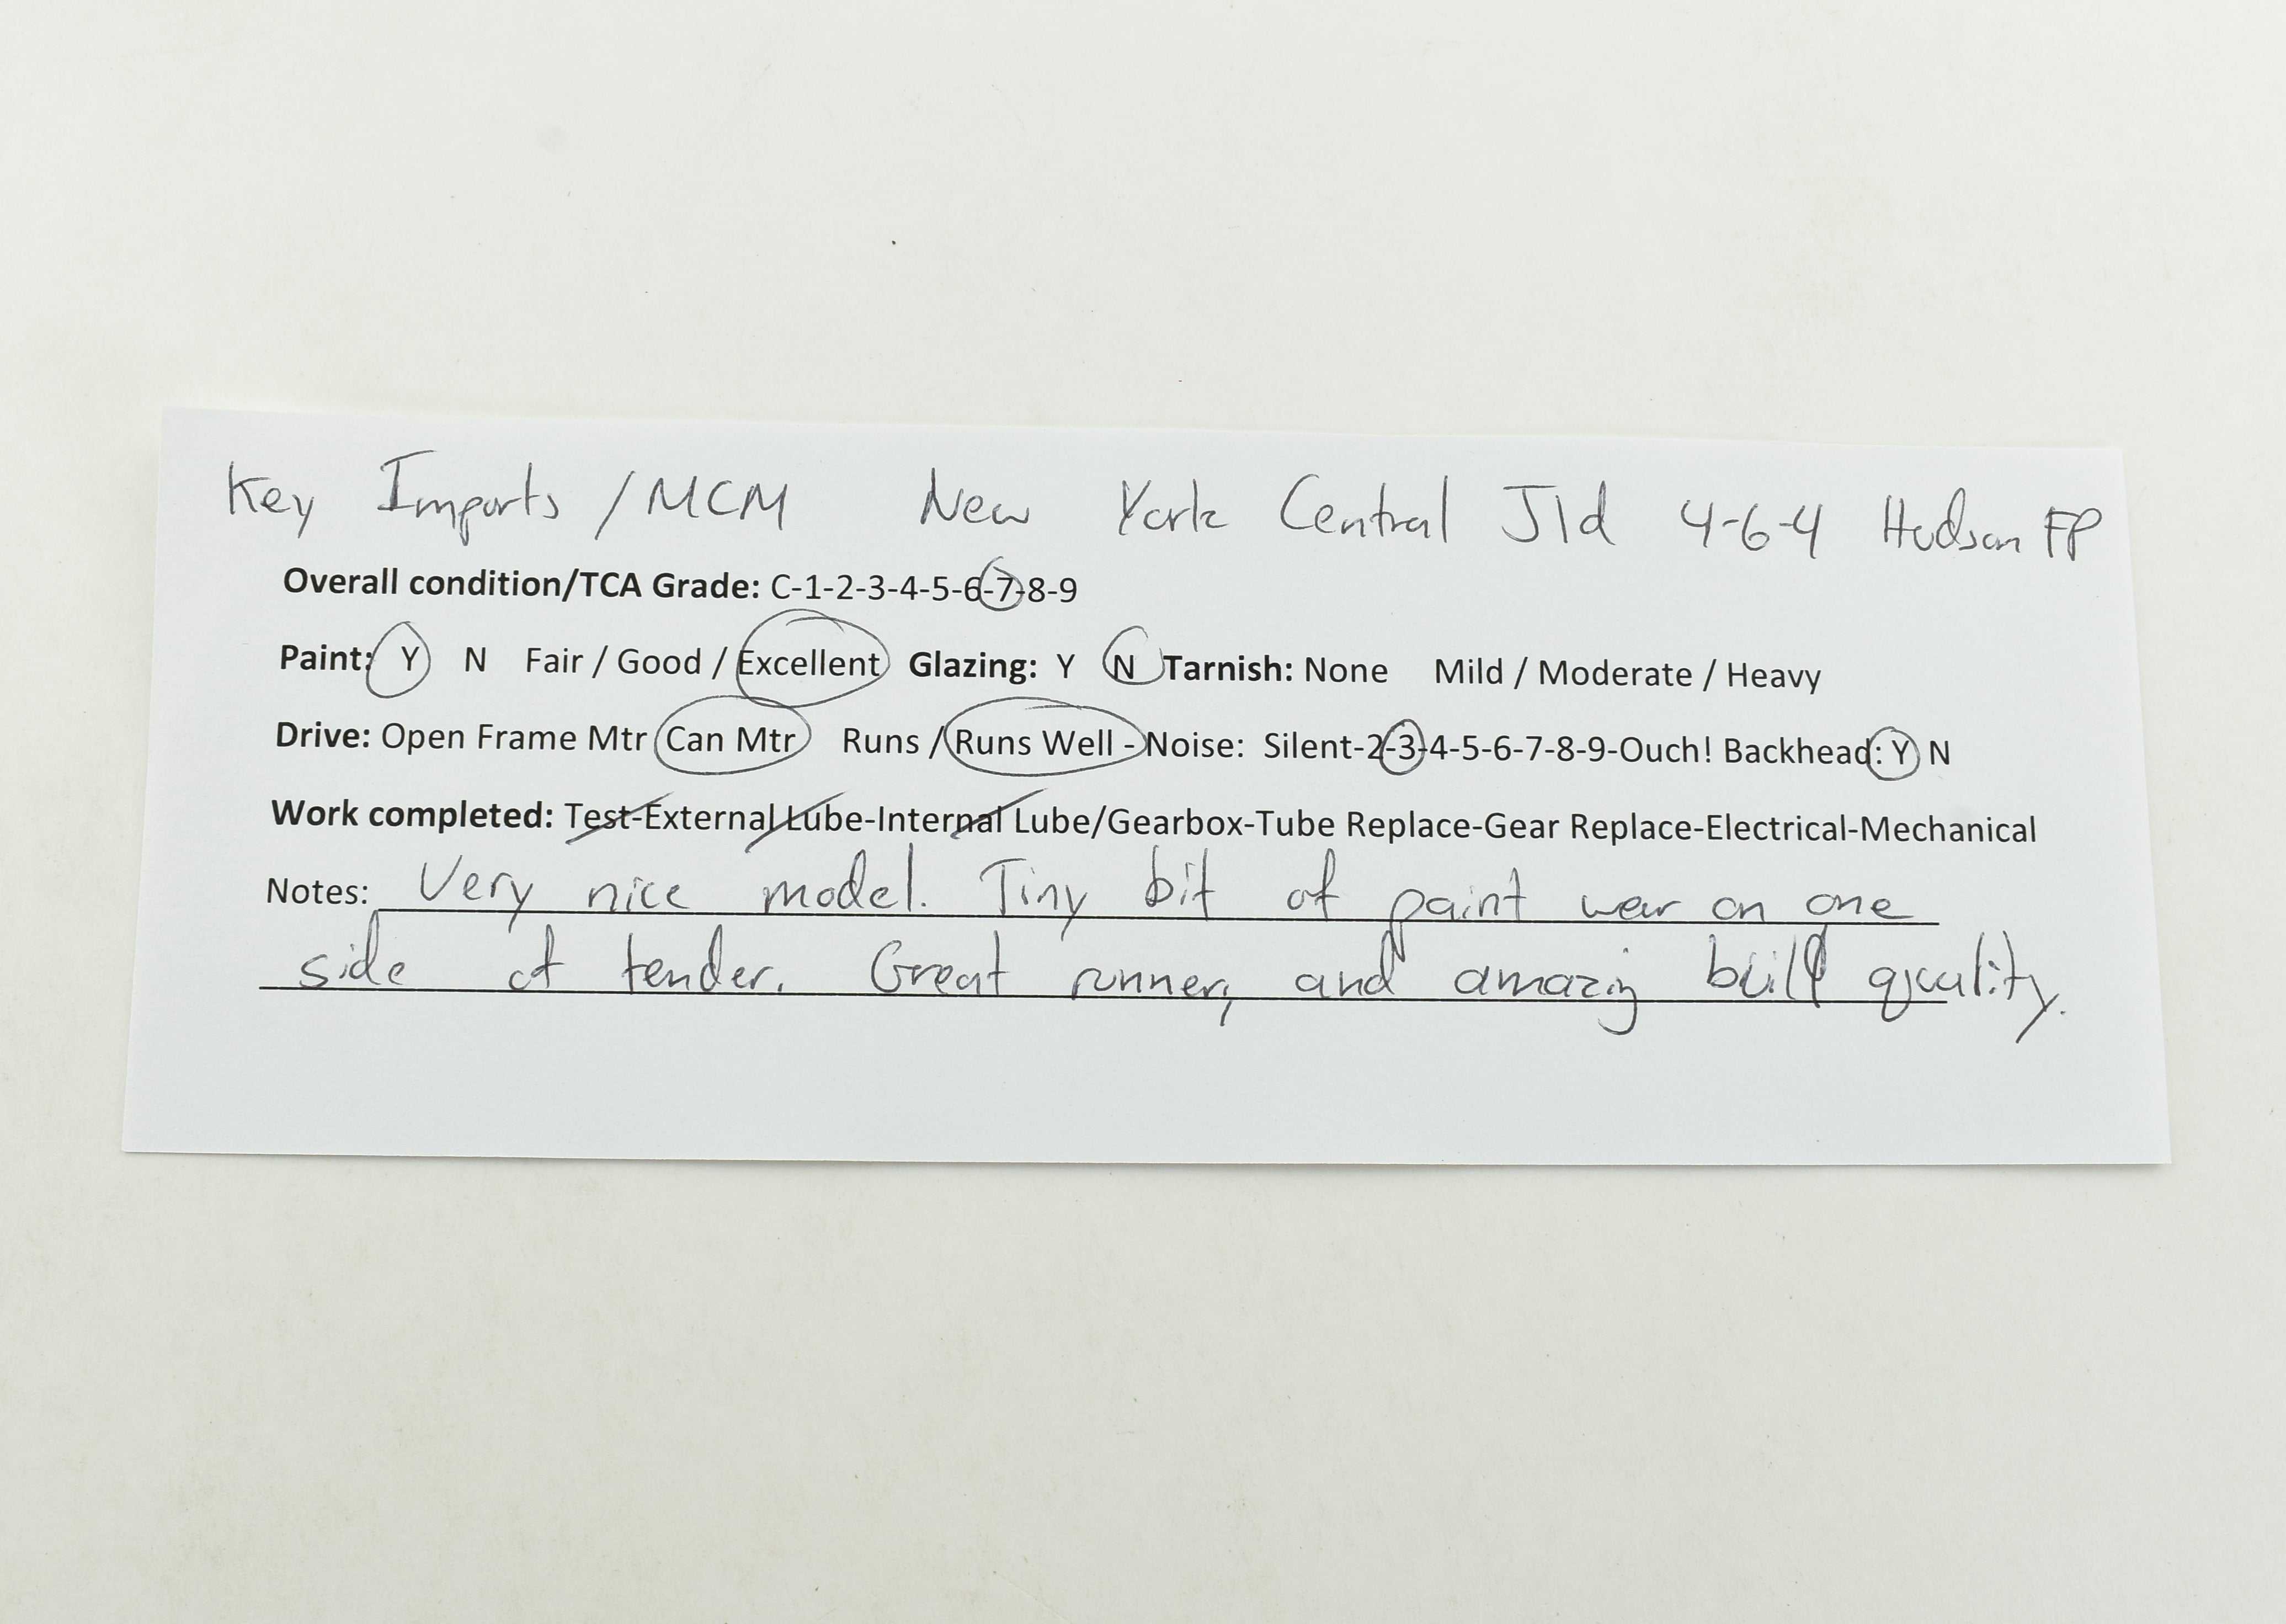 Key Imports / MCM New York Central J1d 4-6-4 Hudson FP
Overall condition/TCA Grade: C-1-2-3-4-5-6-7-8-9
Paint: Y N Fair / Good / Excellent Glazing: Y N Tarnish: None Mild / Moderate / Heavy
Drive: Open Frame Mtr Can Mtr Runs / Runs Well - Noise: Silent-2-3-4-5-6-7-8-9-Ouch! Backhead: Y N
Work completed: Test-External Lube-Internal Lube/Gearbox-Tube Replace-Gear Replace-Electrical-Mechanical
Notes: Very nice model. Tiny bit of paint wear on one
side of tender. Great runner, and amazing build quality.